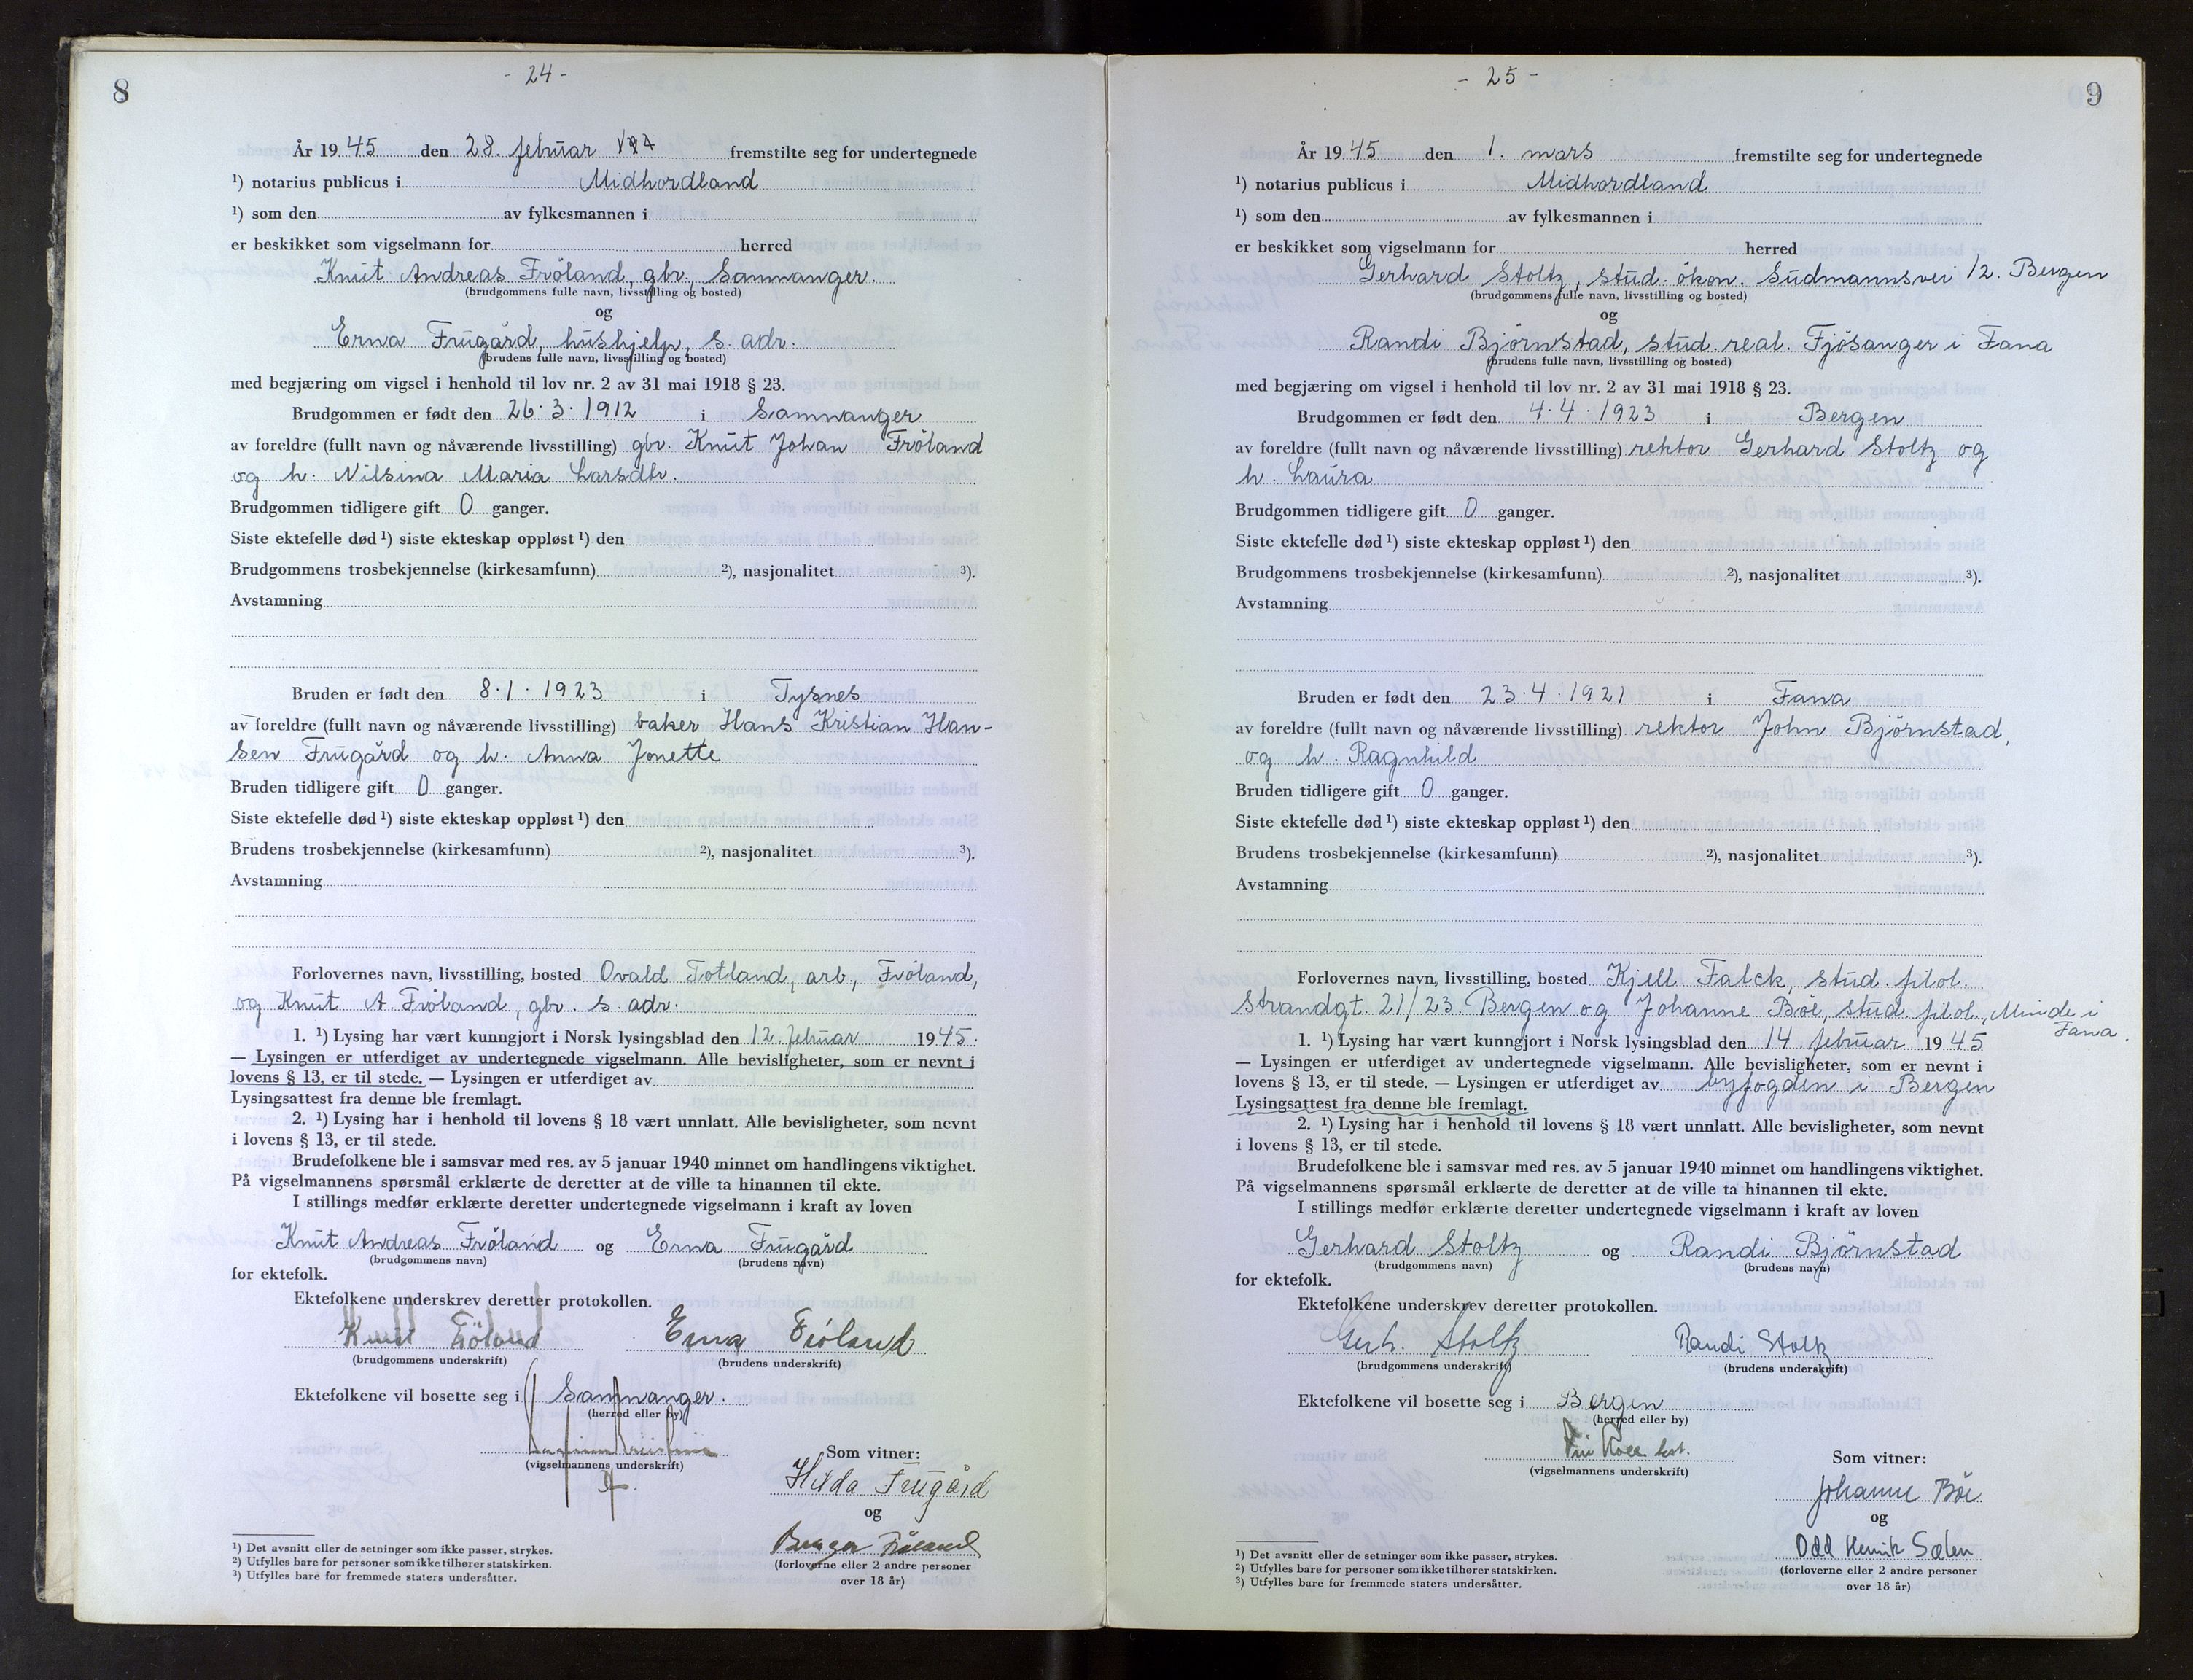 8
- 24 -
År 1945 den 28. februar fremstilte seg for undertegnede
¹) notarius publicus i Midhordland
¹) som den av fylkesmannen i
er beskikket som vigselmann for herred
Knut Andreas Fröland, gbr., Samnanger.
(brudgommens fulle navn, livsstilling og bosted)
og
Erna Frugård, hushjelp, s. adr.
(brudens fulle navn, livsstilling og bosted)
med begjæring om vigsel i henhold til lov nr. 2 av 31 mai 1918 § 23.
Brudgommen er født den 26.3.1912 i Samnanger
av foreldre (fullt navn og nåværende livsstilling) gbr. Knut Johan Fröland
og h. Nilsina Maria Larsdtr.
Brudgommen tidligere gift 0 ganger.
Siste ektefelle død ¹) siste ekteskap oppløst ¹) den
Brudgommens trosbekjennelse (kirkesamfunn) ²), nasjonalitet ³).
Avstamning
Bruden er født den 8.1.1923 i Tysnes
av foreldre (fullt navn og nåværende livsstilling) baker Hans Kristian Han-
sen Frugård og h. Anna Jonette
Bruden tidligere gift 0 ganger.
Siste ektefelle død ¹) siste ekteskap oppløst ¹) den
Brudens trosbekjennelse (kirkesamfunn) ²), nasjonalitet ³).
Avstamning
Forlovernes navn, livsstilling, bosted Ovald Totland, arb., Fröland,
og Knut A. Fröland, gbr. s. adr.
1. ¹) Lysing har vært kunngjort i Norsk lysingsblad den 12. februar 1945.
— Lysingen er utferdiget av undertegnede vigselmann. Alle bevisligheter, som er nevnt i
lovens § 13, er til stede. — Lysingen er utferdiget av
Lysingsattest fra denne ble fremlagt.
2. ¹) Lysing har i henhold til lovens § 18 vært unnlatt. Alle bevisligheter, som nevnt
i lovens § 13, er til stede.
Brudefolkene ble i samsvar med res. av 5 januar 1940 minnet om handlingens viktighet.
På vigselmannens spørsmål erklærte de deretter at de ville ta hinannen til ekte.
I stillings medfør erklærte deretter undertegnede vigselmann i kraft av loven
Knut Andreas Fröland og Erna Frugård
(brudgommens navn) (brudens navn)
for ektefolk.
Ektefolkene underskrev deretter protokollen.
Knut Fröland Erna Fröland
(brudgommens underskrift) (brudens underskrift)
Ektefolkene vil bosette seg i Samnanger.
(herred eller by)
(vigselmannens underskrift)
Som vitner:
Hilda Frugård
og
Fröland
(forloverne eller 2 andre personer
over 18 år)
¹) Det avsnitt eller de setninger som ikke passer, strykes.
²) Utfylles bare for personer som ikke tilhører statskirken.
³) Utfylles bare for fremmede staters undersåtter.
- 25 -
9
År 1945 den 1. mars fremstilte seg for undertegnede
¹) notarius publicus i Midhordland
¹) som den av fylkesmannen i
er beskikket som vigselmann for herred
Gerhard Stoltz, stud. ökon. Sudmannsvei 12. Bergen
(brudgommens fulle navn, livsstilling og bosted)
og
Randi Björnstad, stud. real. Fjösanger i Fana
(brudens fulle navn, livsstilling og bosted)
med begjæring om vigsel i henhold til lov nr. 2 av 31 mai 1918 § 23.
Brudgommen er født den 4.4.1923 i Bergen
av foreldre (fullt navn og nåværende livsstilling) rektor Gerhard Stoltz og
h. Laura
Brudgommen tidligere gift 0 ganger.
Siste ektefelle død ¹) siste ekteskap oppløst ¹) den
Brudgommens trosbekjennelse (kirkesamfunn) ²), nasjonalitet ³).
Avstamning
Bruden er født den 23.4.1921 i Fana
av foreldre (fullt navn og nåværende livsstilling) rektor John Björnstad,
og h. Ragnhild
Bruden tidligere gift 0 ganger.
Siste ektefelle død ¹) siste ekteskap oppløst ¹) den
Brudens trosbekjennelse (kirkesamfunn) ²), nasjonalitet ³).
Avstamning
Forlovernes navn, livsstilling, bosted Kjell Falck, stud. filol.
Strandgt. 21/23. Bergen og Johanne Böe, stud. filol., Minde i
Fana.
1. ¹) Lysing har vært kunngjort i Norsk lysingsblad den 14. februar 1945
— Lysingen er utferdiget av undertegnede vigselmann. Alle bevisligheter, som er nevnt i
lovens § 13, er til stede. — Lysingen er utferdiget av byfogden i Bergen
Lysingsattest fra denne ble fremlagt.
2. ¹) Lysing har i henhold til lovens § 18 vært unnlatt. Alle bevisligheter, som nevnt
i lovens § 13, er til stede.
Brudefolkene ble i samsvar med res. av 5 januar 1940 minnet om handlingens viktighet.
På vigselmannens spørsmål erklærte de deretter at de ville ta hinannen til ekte.
I stillings medfør erklærte deretter undertegnede vigselmann i kraft av loven
Gerhard Stoltz og Randi Björnstad
(brudgommens navn) (brudens navn)
for ektefolk.
Ektefolkene underskrev deretter protokollen.
Gerh. Stoltz Randi Stoltz
(brudgommens underskrift) (brudens underskrift)
Ektefolkene vil bosette seg i Bergen
(herred eller by)
(vigselmannens underskrift)
Som vitner:
Johanne Böe
og
Odd Henrik Sælen
(forloverne eller 2 andre personer
over 18 år)
¹) Det avsnitt eller de setninger som ikke passer, strykes.
²) Utfylles bare for personer som ikke tilhører statskirken.
³) Utfylles bare for fremmede staters undersåtter.